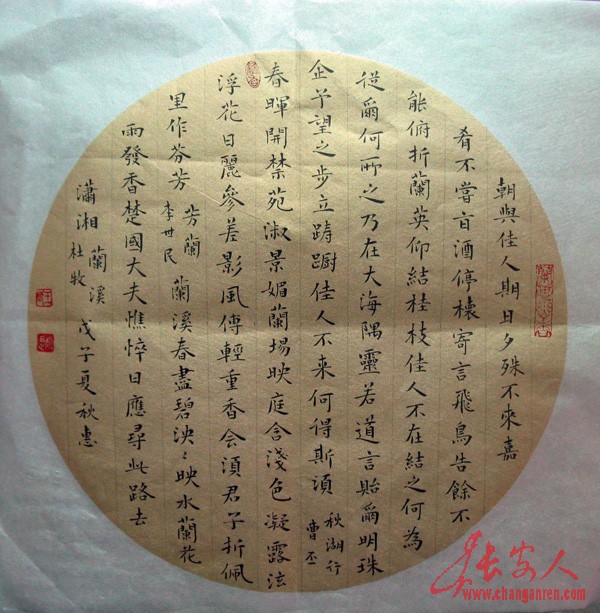 朝與佳人期日夕殊不來嘉
肴不嘗旨酒停桮寄言飛鳥告餘不
能俯折蘭英仰結桂枝佳人不在結之何為
從爾何所之乃在大海隅靈若道言貽爾明珠
企予望之步立踌躕佳人不来何得斯須 秋湖行 曹丕
春暉開禁苑淑景媚蘭場映庭含淺色凝露泫
浮花日麗參差影風傳輕重香会須君子折佩
里作芬芳 芳蘭 李世民 蘭溪春盡碧泱々映水蘭花
雨發香楚國大夫憔悴日應尋此路去
瀟湘 蘭溪 杜牧 戊子夏秋惠
长安人
www.changanren.com